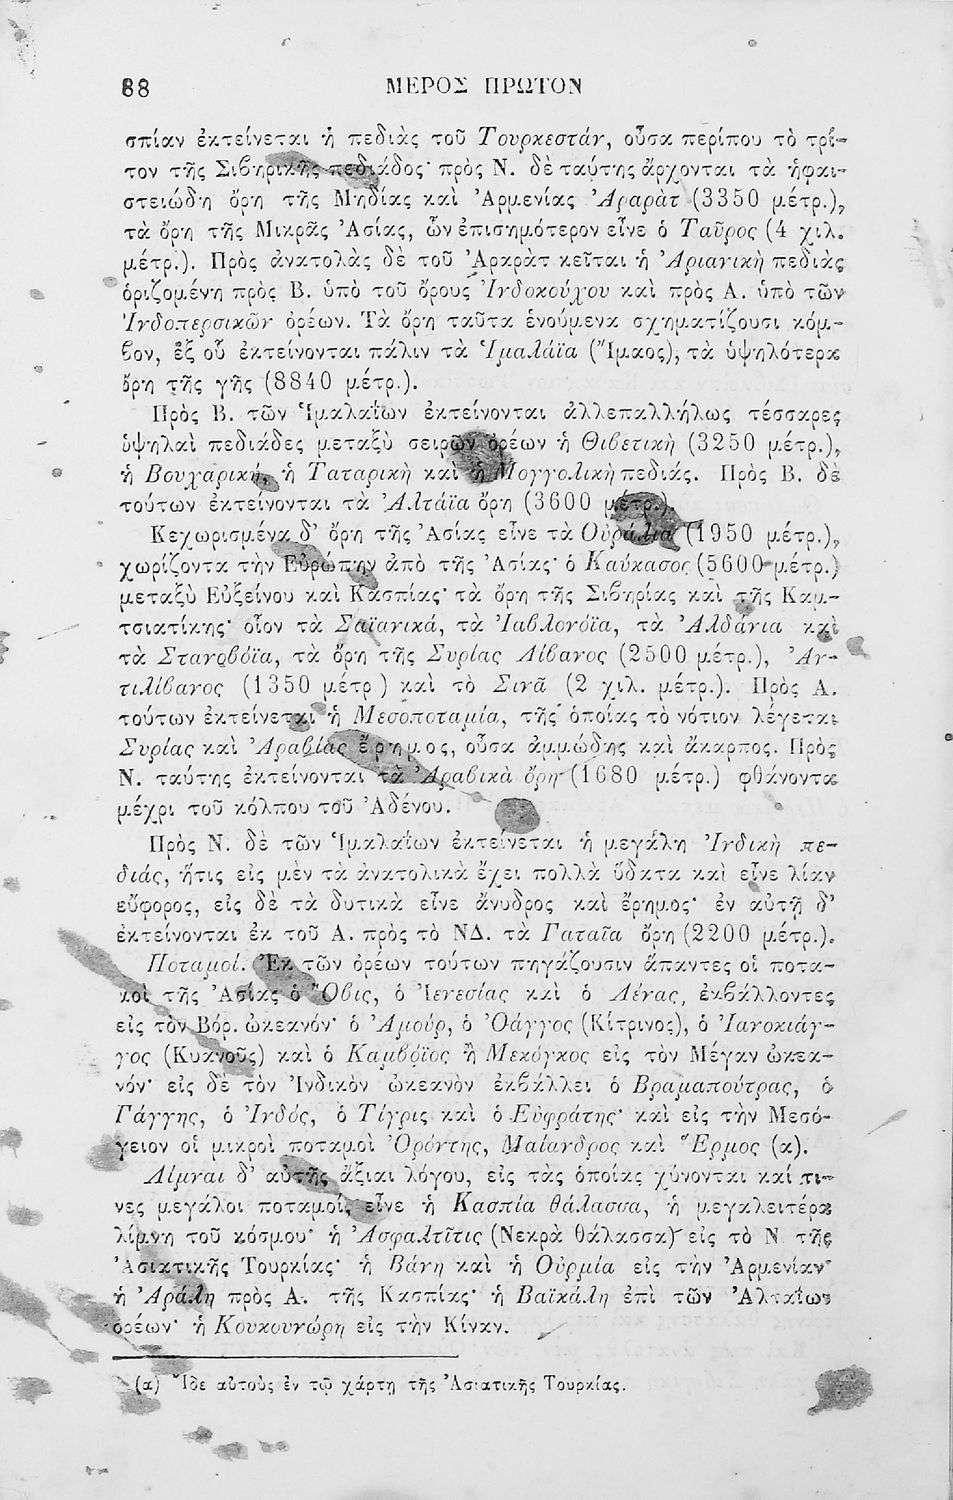 88 ΜΕΡΟΣ ΠΡΩΤΟΝ
σπίαν ἐκτείνεται ἡ πεδιὰς τοῦ Τουρκεστάν, οὖσα περίπου τὸ τρί-
τον τῆς Σιβηρικῆς πεδιάδος· πρὸς Ν. δὲ ταύτης ἄρχονται τὰ ἡφαι-
στειώδη ὄρη τῆς Μηδίας καὶ Ἀρμενίας Ἀραρὰτ (3350 μέτρ.),
τὰ ὄρη τῆς Μικρᾶς Ἀσίας, ὧν ἐπισημότερον εἶνε ὁ Ταῦρος (4 χιλ.
μέτρ.). Πρὸς ἀνατολὰς δὲ τοῦ Ἀραρὰτ κεῖται ἡ Ἀριανικὴ πεδιὰς
ὁριζομένη πρὸς Β. ὑπὸ τοῦ ὄρους Ἰνδοκούχου καὶ πρὸς Α. ὑπὸ τῶν
Ἰνδοπερσικῶν ὀρέων. Τὰ ὄρη ταῦτα ἑνούμενα σχηματίζουσι κόμ-
βον, ἐξ οὗ ἐκτείνονται πάλιν τὰ Ἱμαλάϊα (Ἴμαος), τὰ ὑψηλότερα
ὄρη τῆς γῆς (8840 μέτρ.).
Πρὸς Β. τῶν Ἱμαλαΐων ἐκτείνονται ἀλλεπαλλήλως τέσσαρες
ὑψηλαὶ πεδιάδες μεταξὺ σειρῶν ὀρέων ἡ Θιβετικὴ (3250 μέτρ.),
ἡ Βουχαρική, ἡ Ταταρικὴ καὶ ἡ Μογγολικὴ πεδιάς. Πρὸς Β. δὲ
τούτων ἐκτείνονται τὰ Ἀλτάϊα ὄρη (3600 μέτρ.).
Κεχωρισμένα δ' ὄρη τῆς Ἀσίας εἶνε τὰ Οὐράλια (1950 μέτρ.),
χωρίζοντα τὴν Εὐρώπην ἀπὸ τῆς Ἀσίας· ὁ Καύκασος (5600 μέτρ.)
μεταξὺ Εὐξείνου καὶ Κασπίας· τὰ ὄρη τῆς Σιβηρίας καὶ τῆς Καμ-
τσιατίκης· οἷον τὰ Σαϊανικά, τὰ Ἰαβλονόϊα, τὰ Ἀλδάνια καὶ
τὰ Στανοβόϊα, τὰ ὄρη τῆς Συρίας Λίβανος (2500 μέτρ.), Ἀν-
τιλίβανος (1350 μέτρ) καὶ τὸ Σινᾶ (2 χιλ. μέτρ.). Πρὸς Α.
τούτων ἐκτείνεται ἡ Μεσοποταμία, τῆς ὁποίας τὸ νότιον λέγεται
Συρίας καὶ Ἀραβίας ἔρημος, οὖσα ἀμμώδης καὶ ἄκαρπος. Πρὸς
Ν. ταύτης ἐκτείνονται τὰ Ἀραβικὰ ὄρη (1680 μέτρ.) φθάνοντα
μέχρι τοῦ κόλπου τοῦ Ἀδένου.
Πρὸς Ν. δὲ τῶν Ἱμαλαΐων ἐκτείνεται ἡ μεγάλη Ἰνδικὴ πε-
διάς, ἥτις εἰς μὲν τὰ ἀνατολικὰ ἔχει πολλὰ ὕδατα καὶ εἶνε λίαν
εὔφορος, εἰς δὲ τὰ δυτικὰ εἶνε ἄνυδρος καὶ ἔρημος· ἐν αὐτῇ δ'
ἐκτείνονται ἐκ τοῦ Α. πρὸς τὸ ΝΔ. τὰ Γαταῖα ὄρη (2200 μέτρ.).
Ποταμοί. Ἐκ τῶν ὀρέων τούτων πηγάζουσιν ἅπαντες οἱ ποτα-
μοὶ τῆς Ἀσίας ὁ Ὄβις, ὁ Ἰενεσίας καὶ ὁ Λένας, ἐκβάλλοντες
εἰς τὸν Βόρ. ὠκεανόν· ὁ Ἀμούρ, ὁ Ὀάγγος (Κίτρινος), ὁ Ἰανοκιάγ-
γος (Κυανοῦς) καὶ ὁ Καμβόϊος ἢ Μεκόγκος εἰς τὸν Μέγαν ὠκεα-
νόν· εἰς δὲ τὸν Ἰνδικὸν ὠκεανὸν ἐκβάλλει ὁ Βραμαπούτρας, ὁ
Γάγγης, ὁ Ἰνδός, ὁ Τίγρις καὶ ὁ Εὐφράτης· καὶ εἰς τὴν Μεσό-
γειον οἱ μικροὶ ποταμοὶ Ὀρόντης, Μαίανδρος καὶ Ἕρμος (α).
Λίμναι δ' αὐτῆς ἄξιαι λόγου, εἰς τὰς ὁποίας χύνονται καί τι-
νες μεγάλοι ποταμοί, εἶνε ἡ Κασπία θάλασσα, ἡ μεγαλειτέρα
λίμνη τοῦ κόσμου· ἡ Ἀσφαλτῖτις (Νεκρὰ θάλασσα) εἰς τὸ Ν τῆς
Ἀσιατικῆς Τουρκίας· ἡ Βάνη καὶ ἡ Οὐρμία εἰς τὴν Ἀρμενίαν·
ἡ Ἀράλη πρὸς Α. τῆς Κασπίας· ἡ Βαϊκάλη ἐπὶ τῶν Ἀλταΐων
ὀρέων· ἡ Κουκουνώρη εἰς τὴν Κίναν.
(α) Ἴδε αὐτοὺς ἐν τῷ χάρτῃ τῆς Ἀσιατικῆς Τουρκίας.